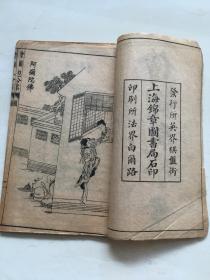 發行所英界棋盤街
上海錦章圖書局石印
印刷所法界白爾路
阿彌陀佛